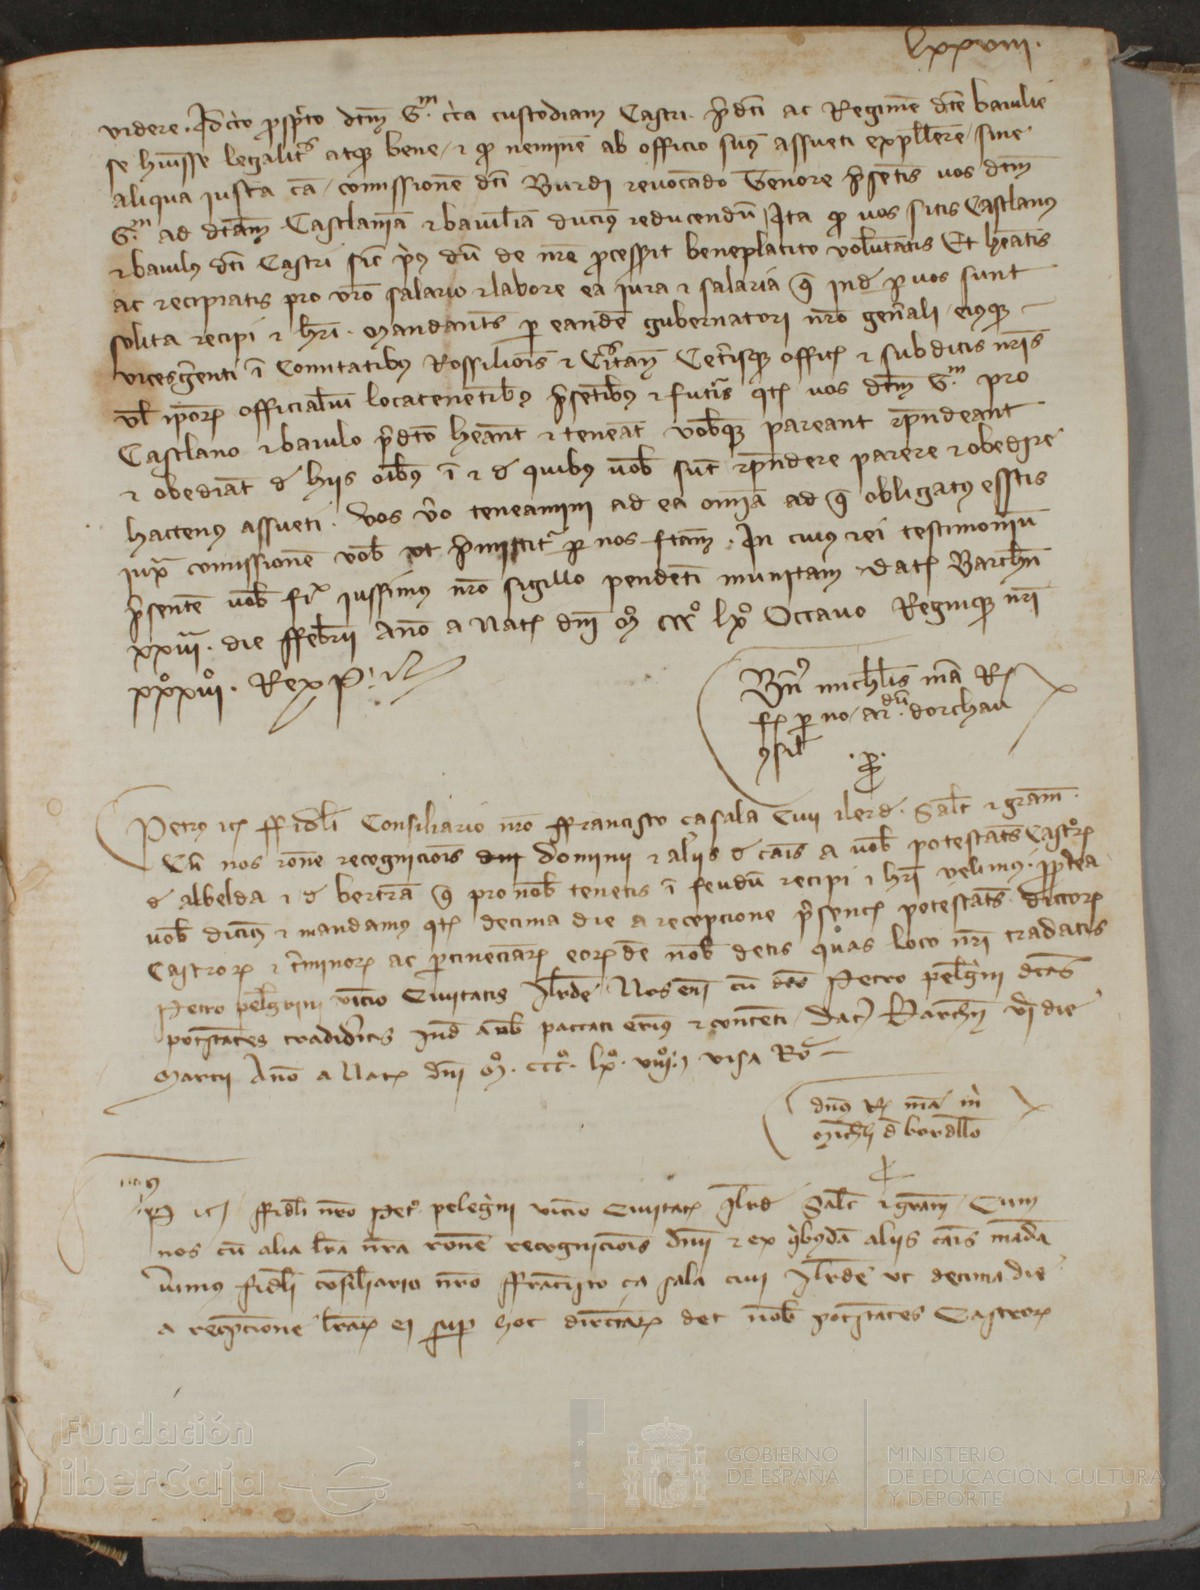 lxxviii.
videre. Idcirco prospecto dictum G.m circa custodiam Castri predicti ac Regimen dicte baiulie
se huisse legaliter atque bene / et quod neminem ab officio suum assueti expellere / sine
aliqua iusta causa / comissionem dicti Burdi revocando Tenore presentis vos dictum
G.m ad dictam Castlaniam et baiuliam ducimus reducendum / Ita quod vos sitis Castlanus
et baiulus dicti Castri sicut prius dum de nostre processerit beneplacito voluntatis Et habeatis
ac recipiatis pro vestro salario et labore ea iura et salaria que inde per vos sunt
solita recipi et haberi. Mandantes per eandem gubernatori nostro generali / eiusque
vicesgerenti in Comitatibus Rossilionis et Ceritanie Ceterisque officialibus et subditis nostris
vel ipsorum officialium locatenentibus presentibus et futuris quod vos dictum G.m pro
Castlano et baiulo predicto habeant et teneant vobisque pareant respondeant
et obediant de hiis omnibus in et de quibus vobis sunt respondere parere et obedire
hactenus assueti. Vos vero teneamini ad ea omnia ad que obligatus estis
iuxta comissionem vobis ut premittitur per nos factam. In cuius rei testimonium
presentem vobis fieri iussimus nostro sigillo pendenti munitam Datum Barchinone
xxiii. die ffebruarii Anno a Nativitate domini Mº cccº lxº Octavo Regnique nostri
xxxiii. Rex P.
Bn michaelis mandato Regis
facto per nobilem ar. dorchau
consiliarium
.p.
Petrus etc ffideli Consiliario nostro ffrancisco ca sala Civi ilerde. Salutem et gratiam.
Cum nos ratione recognicionis dominii et aliis de causis a vobis potestates Castrorum
de albelda et de bertran que pro nobis tenetis in feudum recipi et haberi velimus. propterea
vobis dicimus et mandamus quatenus decima die a recepcione presencium potestates dictorum
Castrorum et terminorum ac pertinenciarum eorundem nobis detis quas loco nostri tradatis
Petro pelegrini vicario Civitatis Ilerde Nos enim cum dicto Petro pelegrini dictas
potestates tradideritis Inde a vobis paccati erimus et contenti / Datum Barchinone vi die
Marcii Anno a Nativitate domini Mº. cccº. lxº. viiiº. visa Ro
dominus Rex mandavit mihi
Michaeli de bordello
P etc ffideli nostro Petro pelegrini vicario Civitatis Ilerde Salutem et gratiam / Cum
nos cum alia littera nostra ratione recognicionis dominii et ex quibusdam aliis causis manda
verimus fideli consiliario nostro ffrancisco ça sala civi Ilerde ut decima die
a recepcione litterarum ei super hoc directarum det nobis potestates Castrorum
Fundación
iberCaja
GOBIERNO
DE ESPAÑA
MINISTERIO
DE EDUCACIÓN, CULTURA
Y DEPORTE